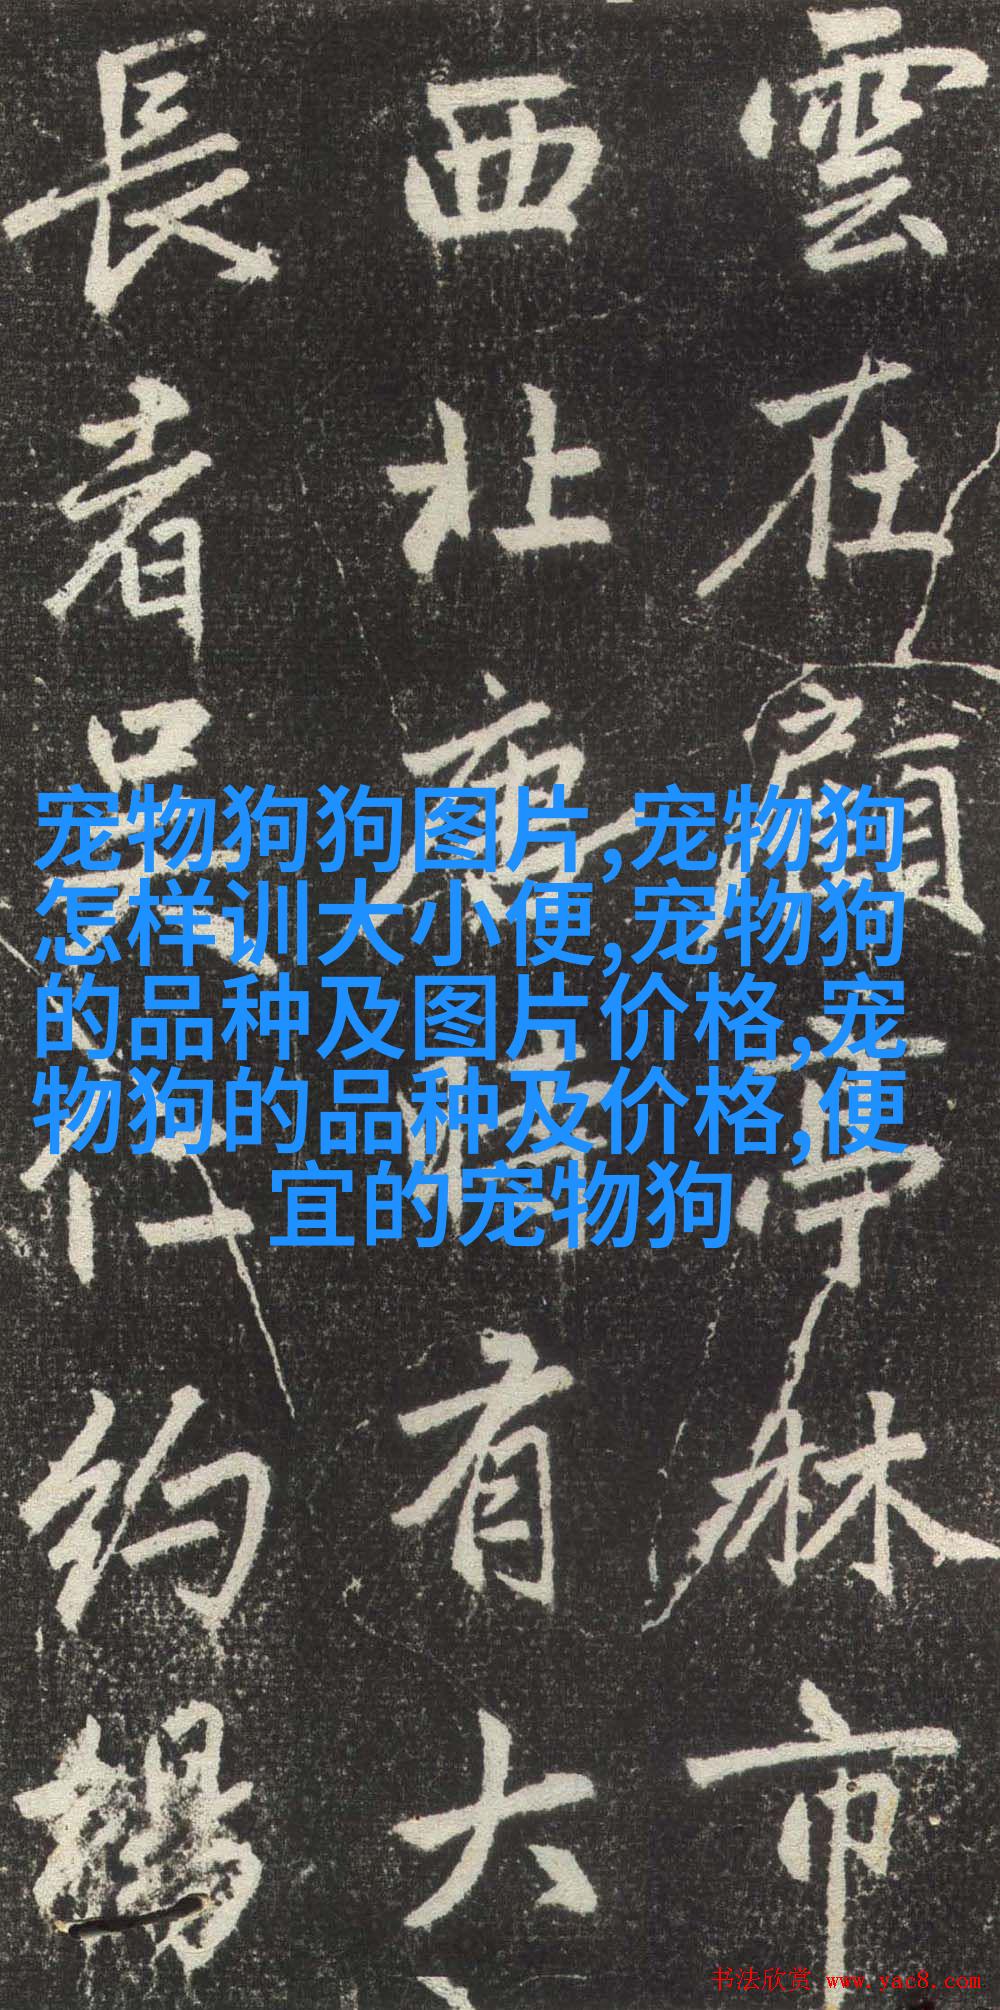 雲在顧亭林市
西北唐時有大
長者吳仁約
宠物狗狗图片,宠物狗
怎样训大小便,宠物狗
的品种及图片价格,宠
物狗的品种及价格,便
宜的宠物狗
书法欣赏 www.yac8.com